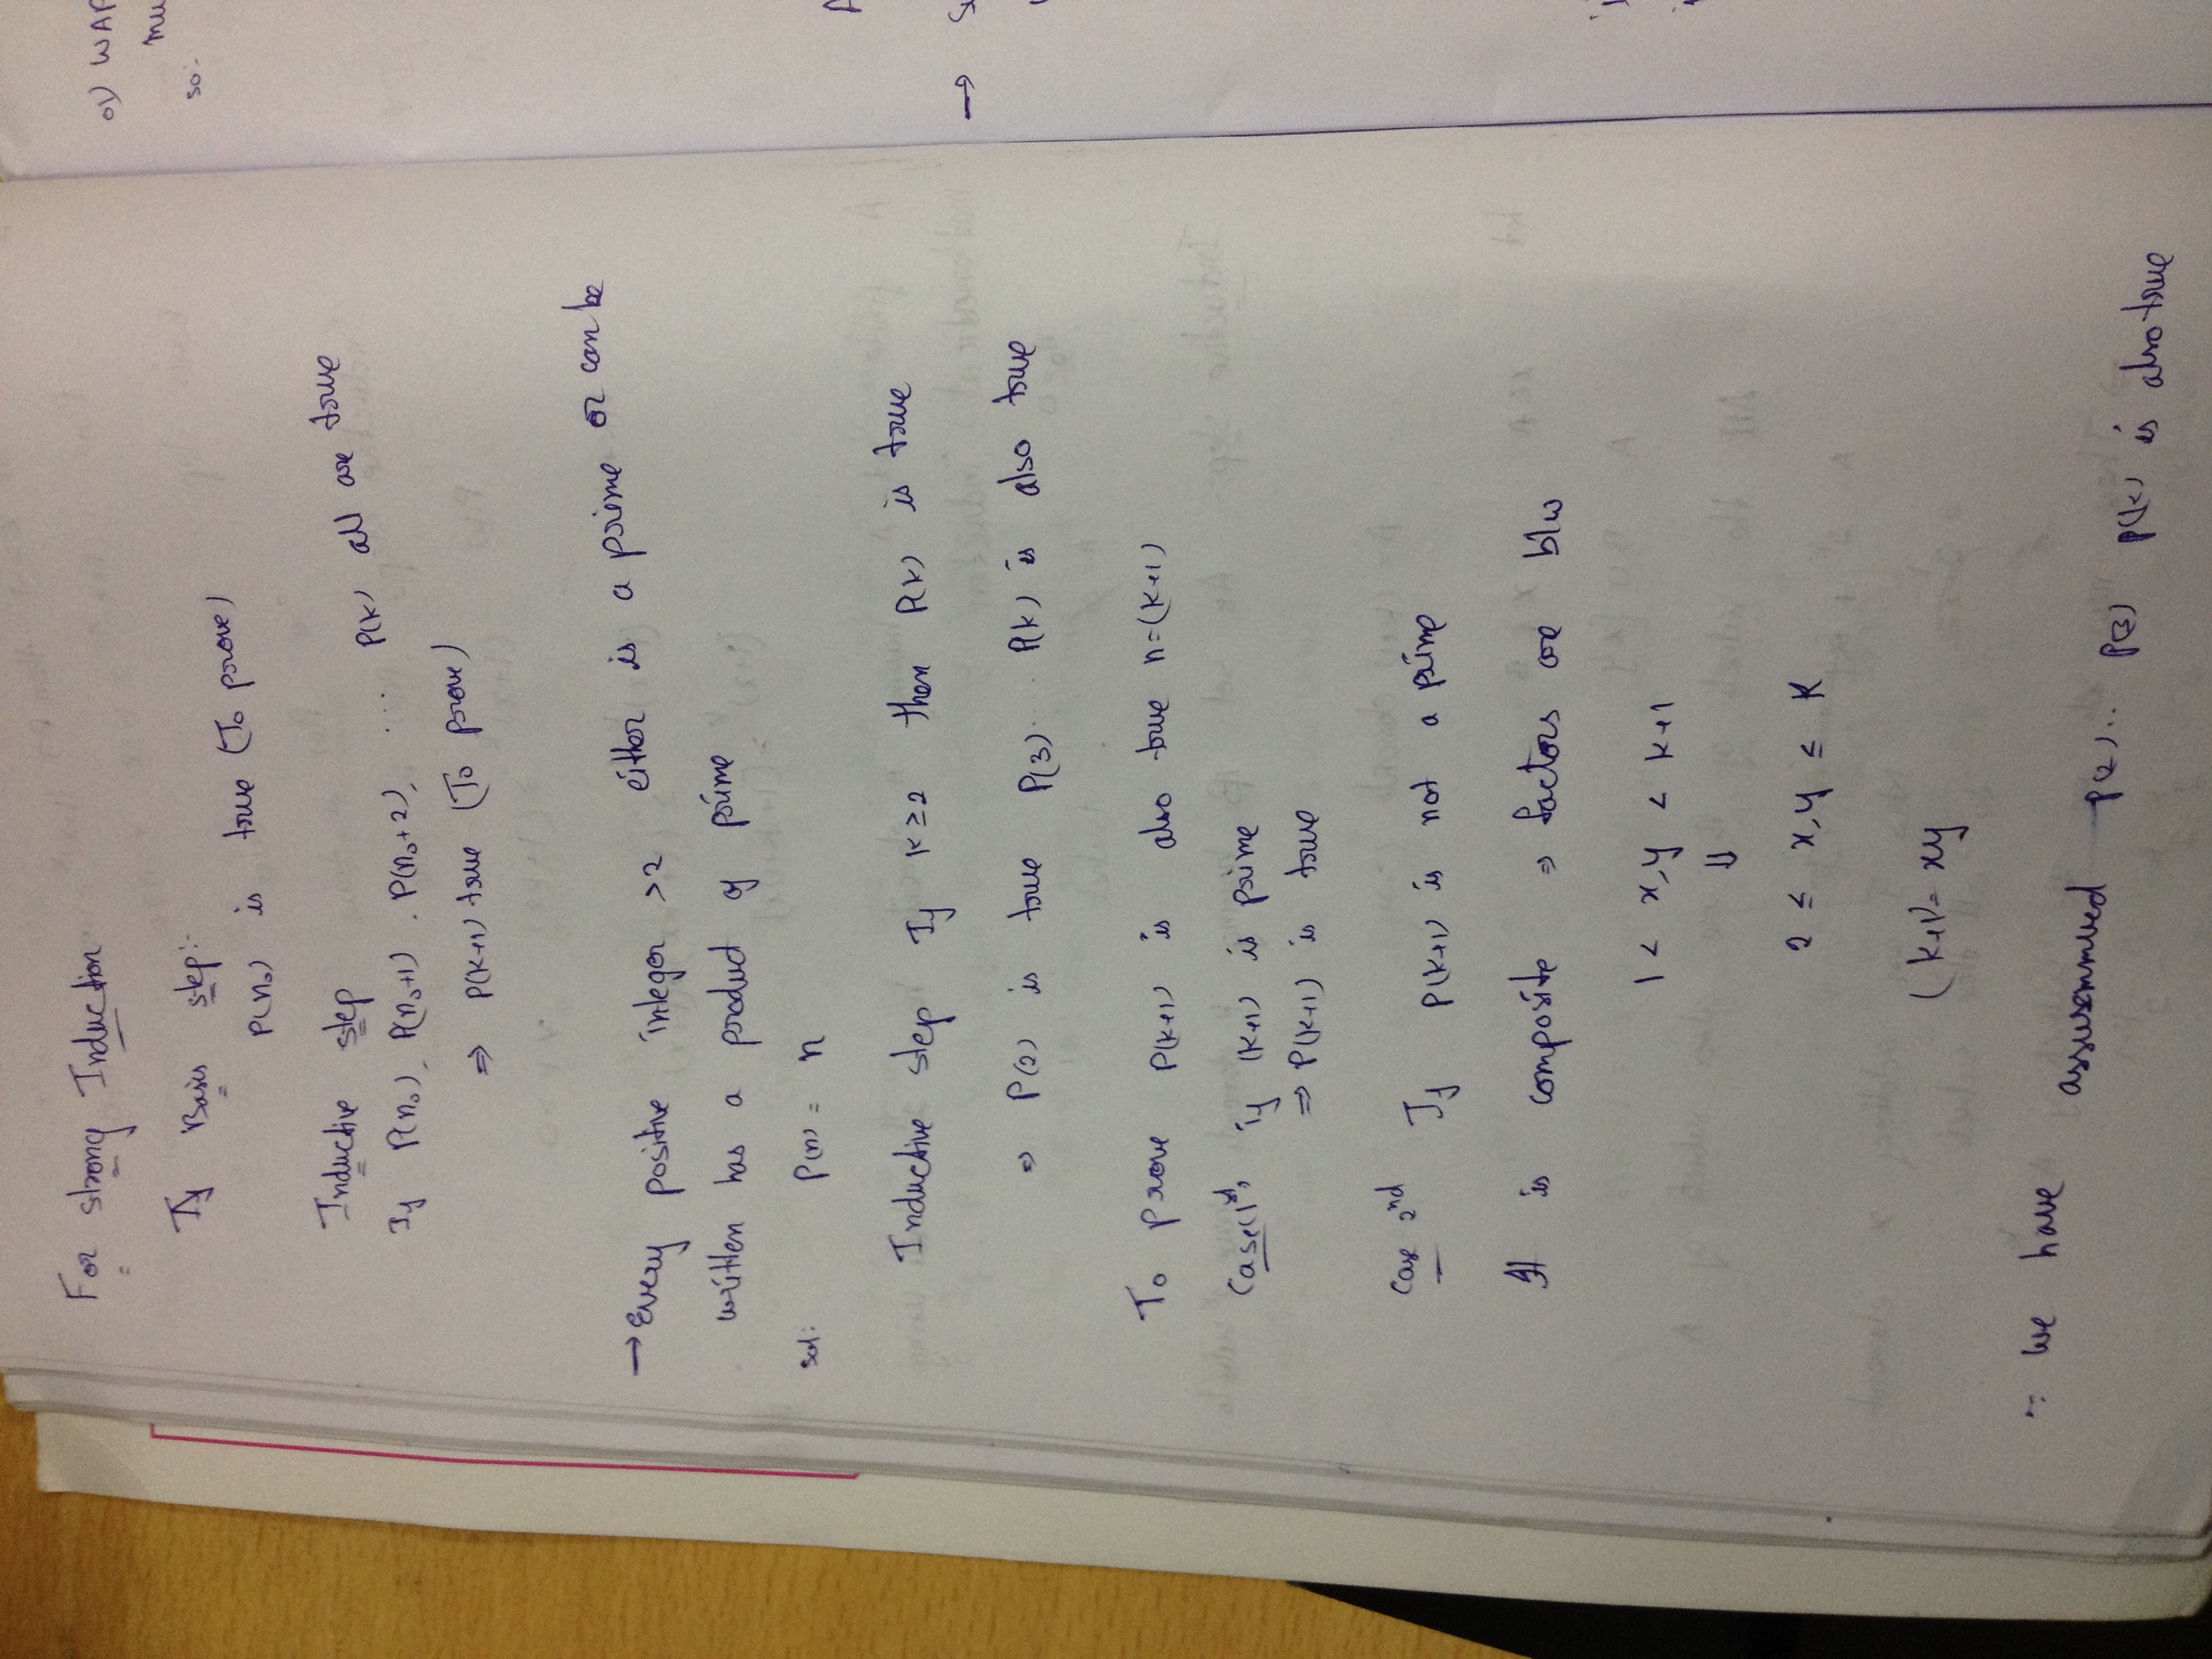 For strong Induction
If Basis step:-
P(n₀) is true (To prove)
Inductive step
If P(n₀), P(n₀+1). P(n₀+2), .... P(k) all are true
⇒ P(k+1) true (To prove)
→ Every positive integer >2 either is a prime or can be
written has a product of prime
sol: P(n) = n
Inductive step If k≥2 then P(k) is true
⇒ P(2) is true P(3).... P(k) is also true
To prove P(k+1) is also true n=(k+1)
Case(1st, if (k+1) is prime
⇒ P(k+1) is true
Case 2nd If P(k+1) is not a prime
It is composite ⇒ factors are b/w
1 < x,y < k+1
⇓
2 ≤ x,y ≤ k
(k+1)= xy
∵ we have assusemmed P(2)... P(3) P(k) is also true
→
01) WAP
so: